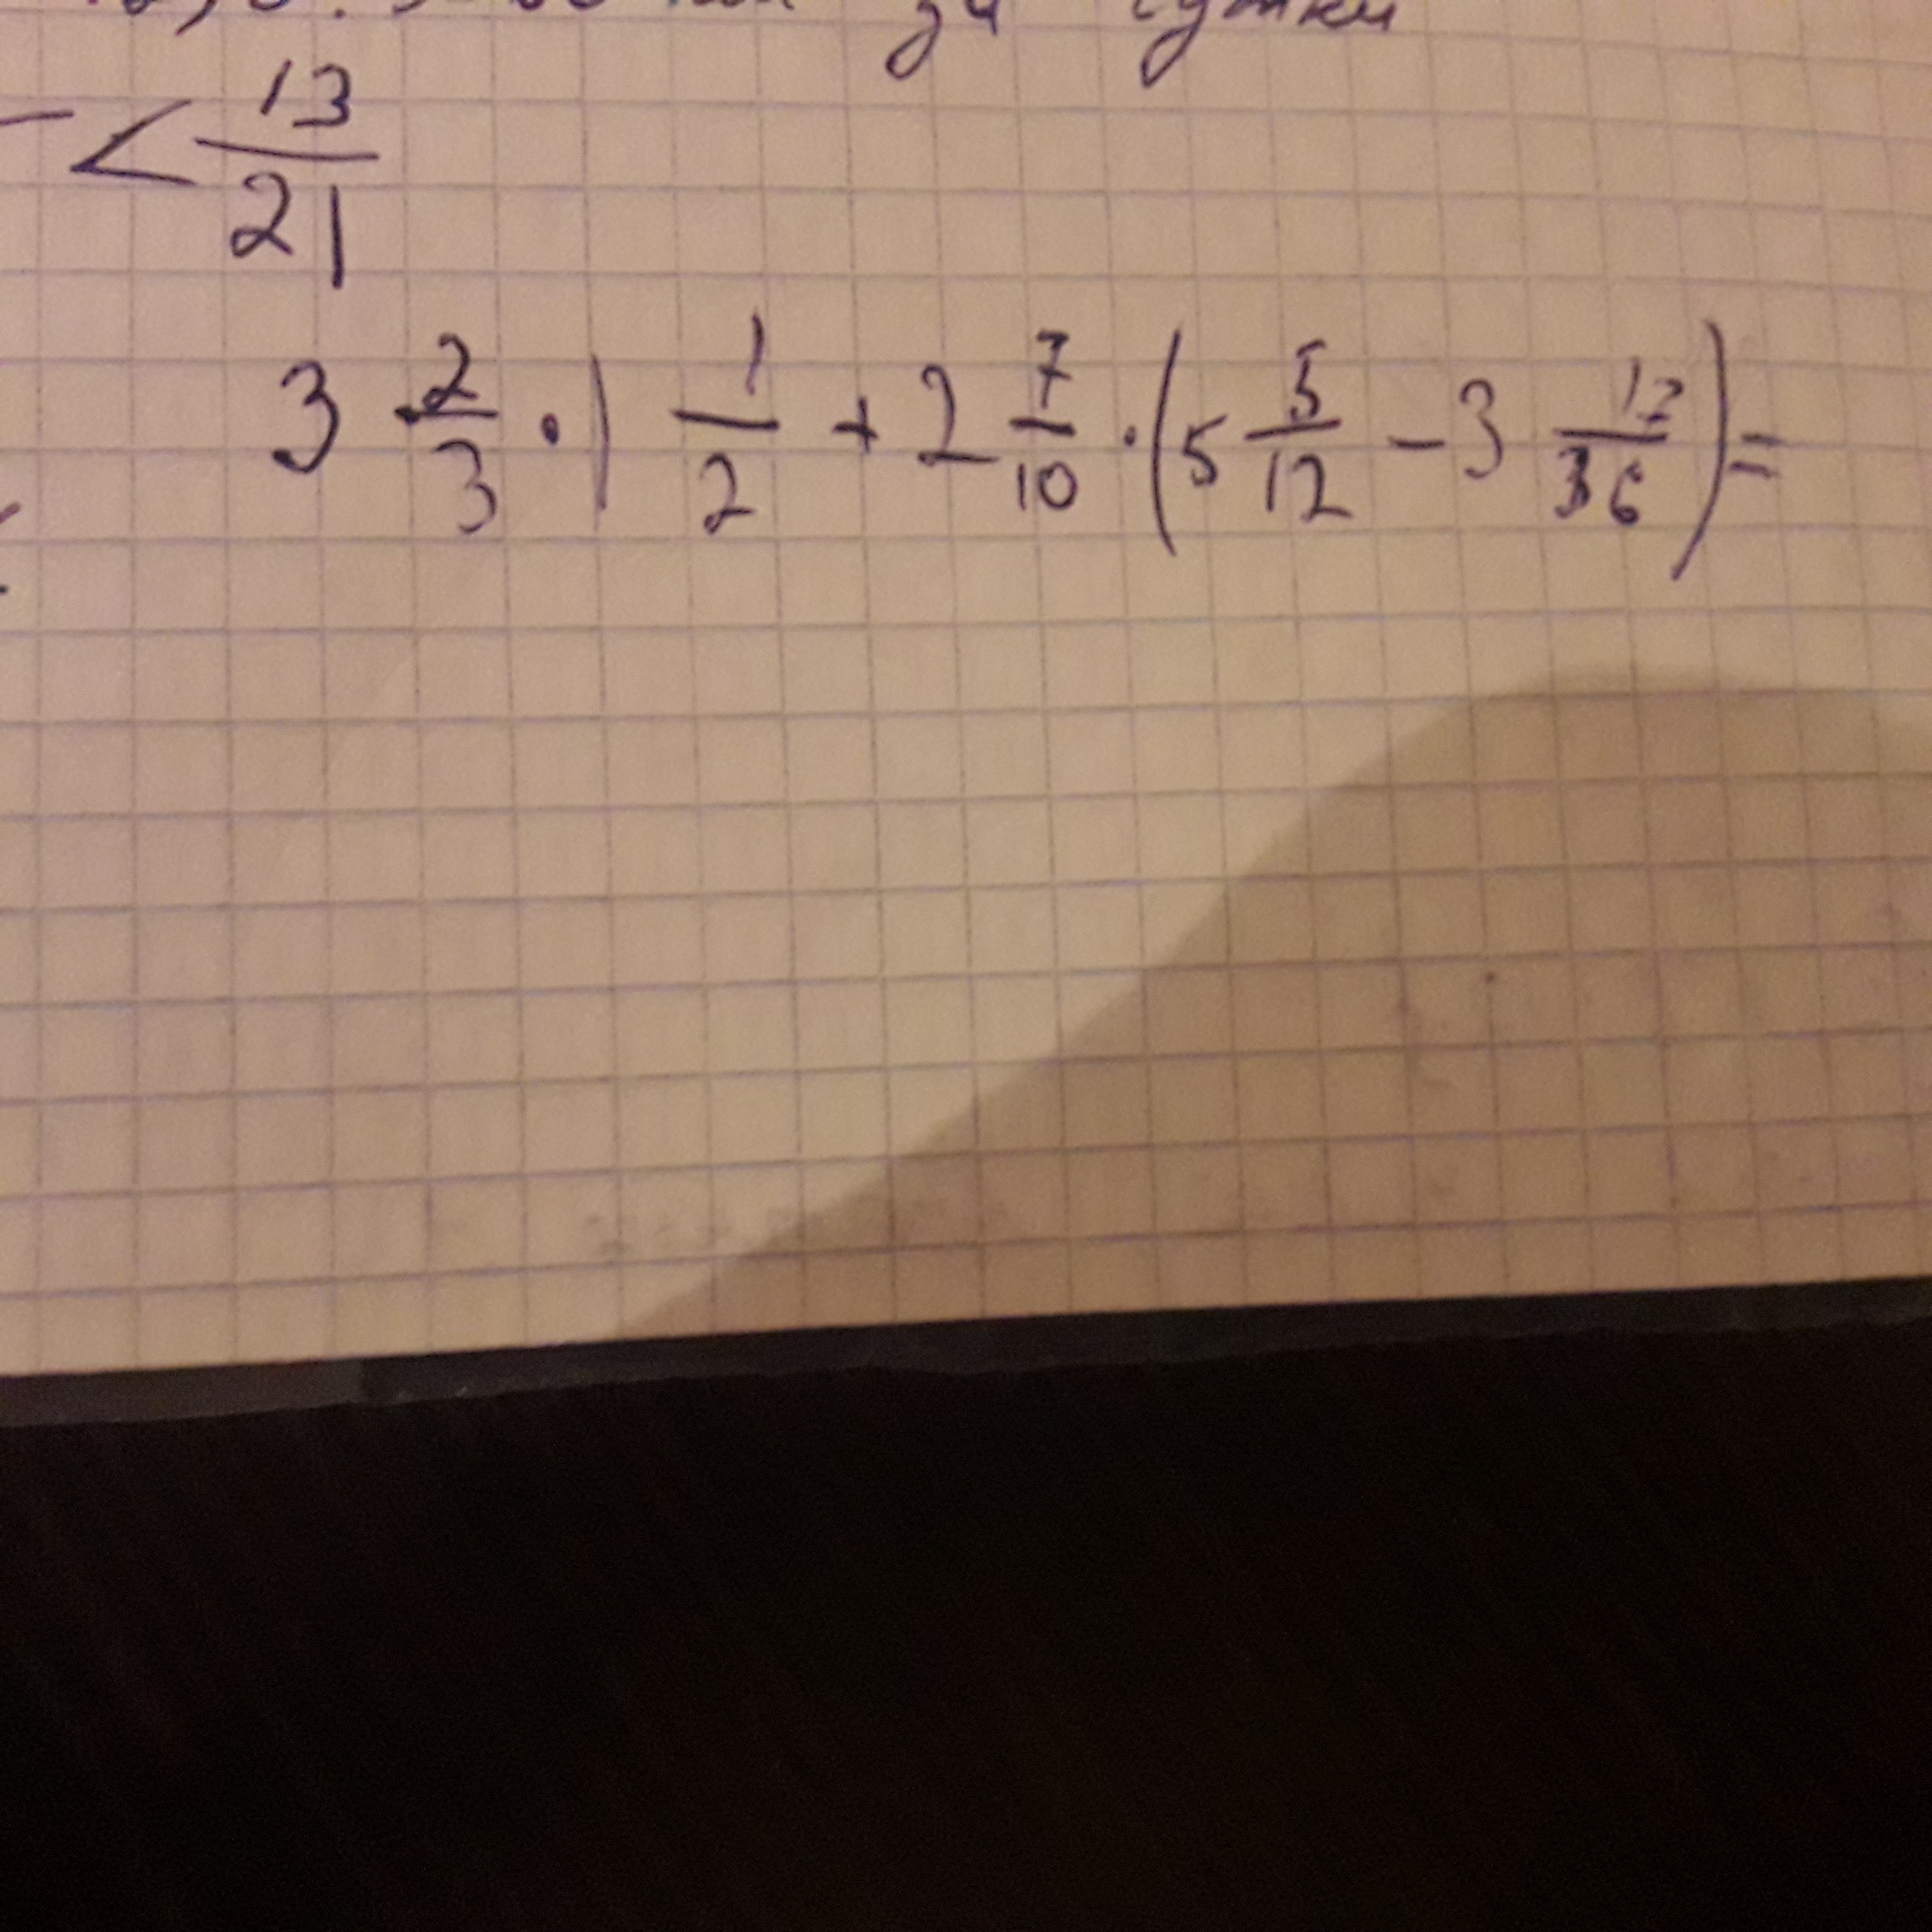 за сутки
< 13/21
3 2/3 · 1 1/2 + 2 7/10 · (5 5/12 - 3 17/36) =